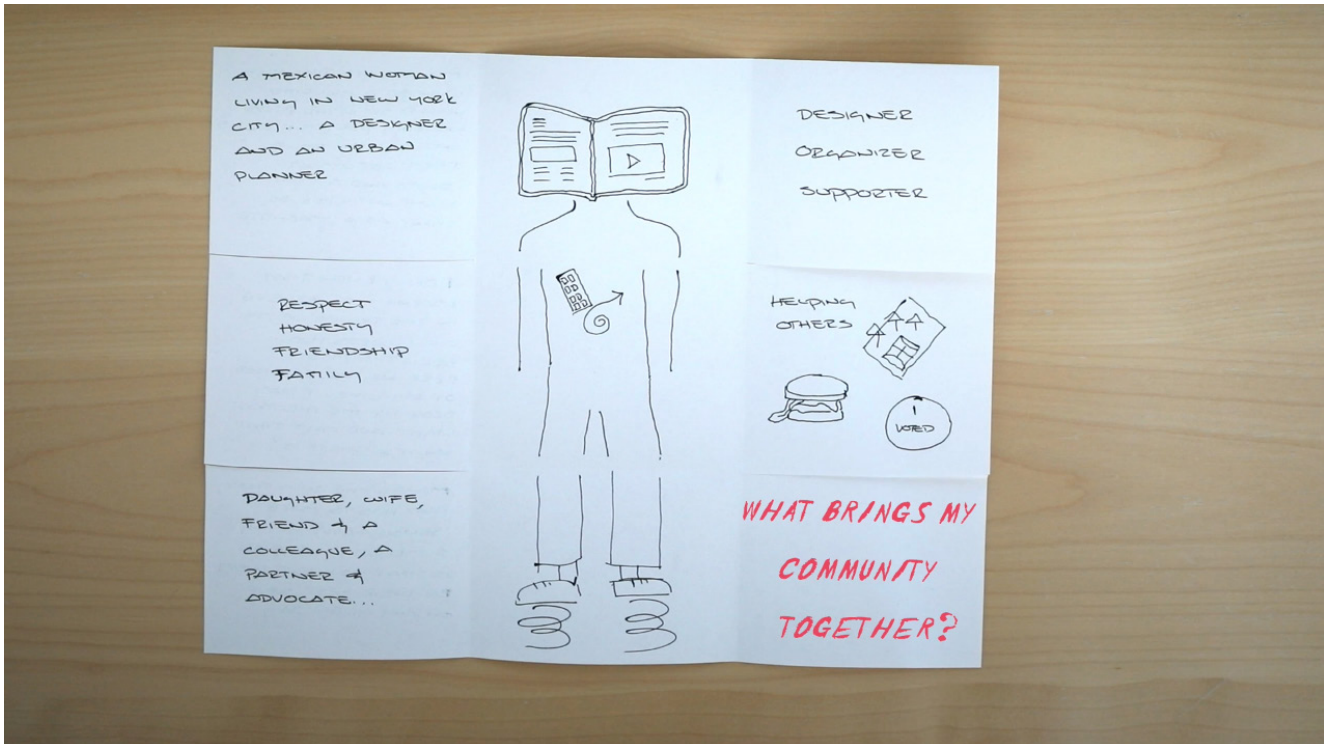 A MEXICAN WOMAN
LIVING IN NEW YORK
CITY... A DESIGNER
AND AN URBAN
PLANNER
RESPECT
HONESTY
FRIENDSHIP
FAMILY
DAUGHTER, WIFE,
FRIEND & A
COLLEAGUE, A
PARTNER &
ADVOCATE...
DESIGNER
ORGANIZER
SUPPORTER
HELPING
OTHERS
I
VOTED
WHAT BRINGS MY
COMMUNITY
TOGETHER?